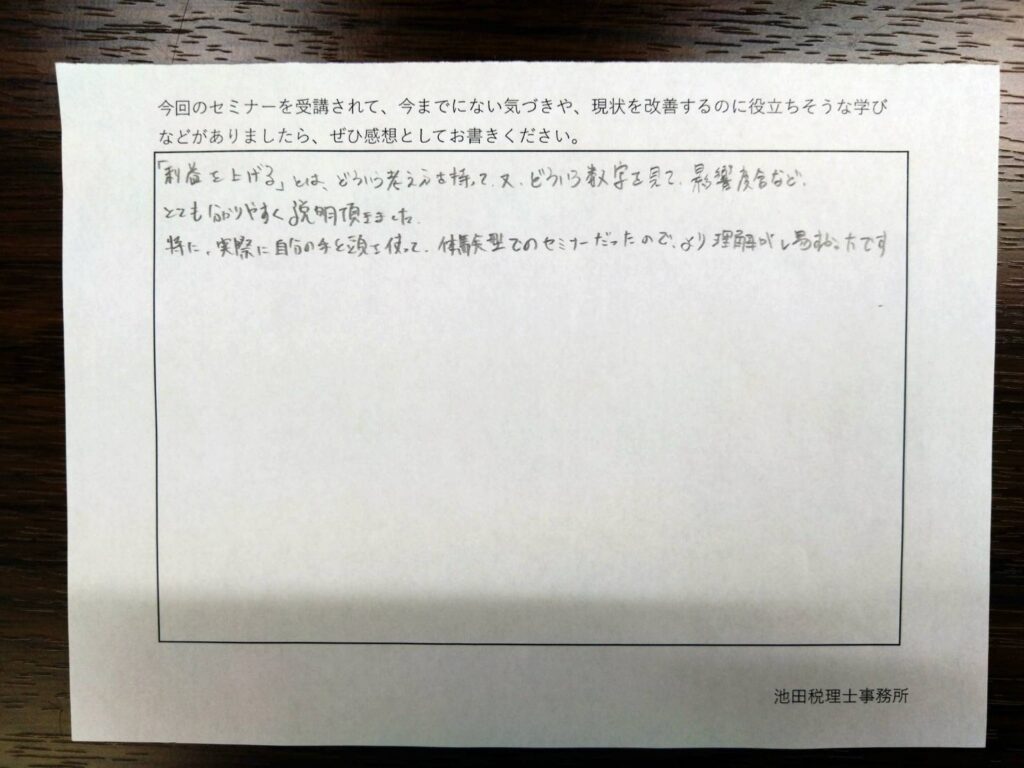 今回のセミナーを受講されて、今までにない気づきや、現状を改善するのに役立ちそうな学び
などがありましたら、ぜひ感想としてお書きください。
「利益を上げる」とは、どういう考え方を持って、又、どういう数字を見て、影響度合など、
とても分かりやすく説明頂きました。
特に、実際に自分の手と頭を使って、体験型でのセミナーだったので、より理解がし易かったです
池田税理士事務所